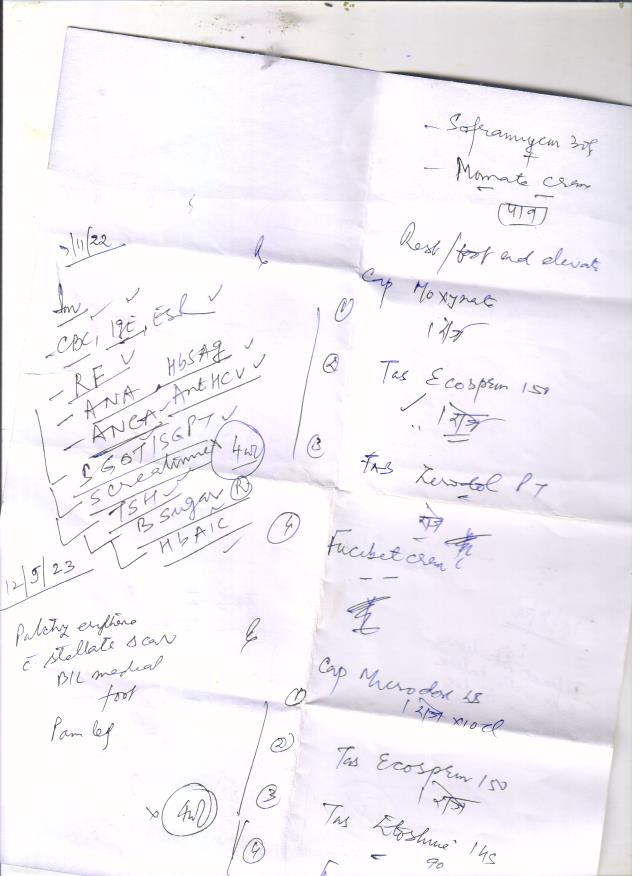 - Soframycin 30g
+
- Momate cream
पाव
Rest / foot end elevate
3/11/22
Rx
Inv
- CBC, IgE, ESR
- RF
- ANA HbSAg
- ANCA Anti HCV
- SGOT/SGPT
- S creatinine 4w
- TSH
- B Sugar (R)
- HbA1C
① Cap Moxynate
1 रोज
② Tab Ecosprin 150
1 रोज
③ Tab Zerodol PT
रोज
④ Fucibet cream
12/5/23
Patchy erythema
c̄ stellate scar
B/L medial
foot
Pain leg
Rx
① Cap Microdox LB
1 रोज x10d
② Tab Ecosprin 150
1 रोज
③ Tab Etoshine
90
x 4w
④